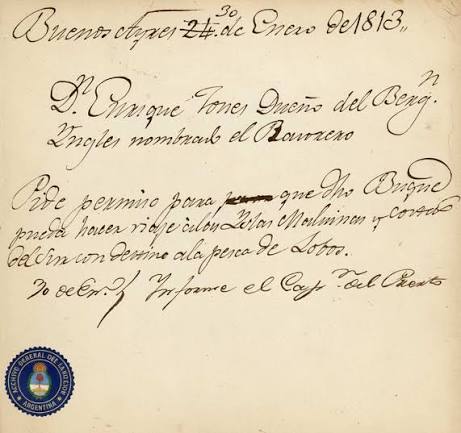 Buenos Ayres 24. 30 de Enero de 1813,,
Dn. Enrique Jones Dueño del Bergn.
Yngles nombrado el Rastrero
Pide permiso para para que dho Buque
pueda hacer viaje a las Yslas Malvinas y Costas
del Sur con destino a la pesca de Lobos.
30 de En.o / Informe el Capn. del Puerto
ARCHIVO GENERAL DEL
ARGENTINA